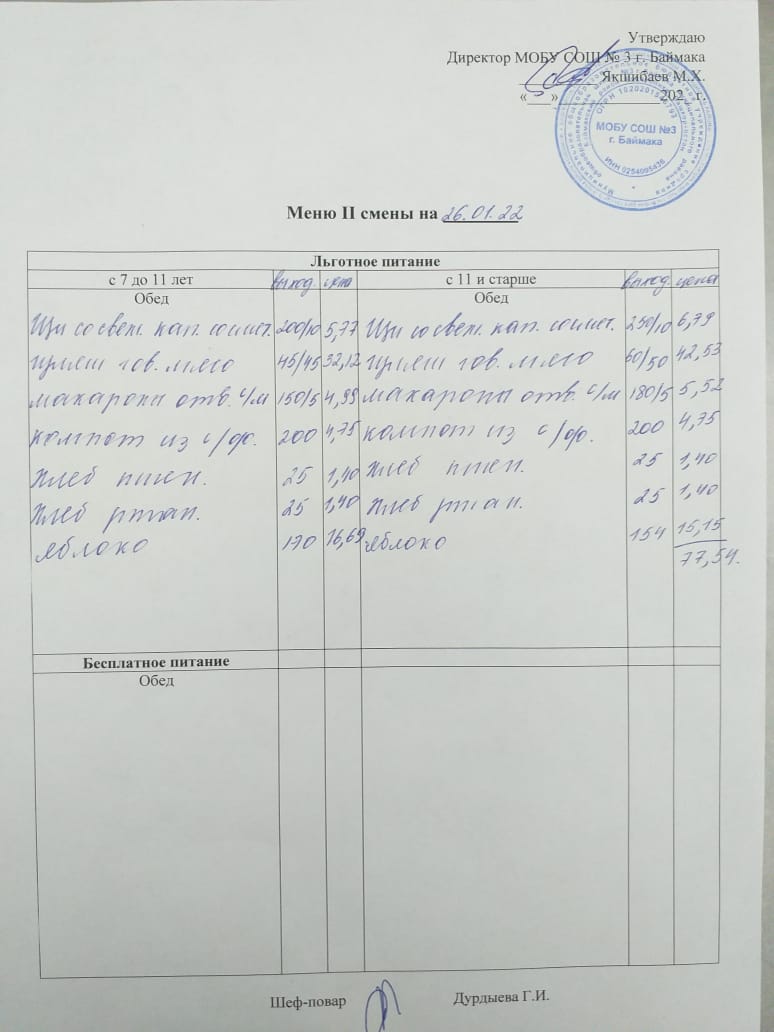 Утверждаю
Директор МОБУ СОШ № 3 г. Баймака
Якшибаев М.Х.
«___»____________202__г.
ОГРН
МОБУ СОШ №3
г. Баймака
ИНН 0254005436
Меню II смены на 26.01.22
Льготное питание
с 7 до 11 лет выход цена с 11 и старше выход цена
Обед Обед
Щи со свеж. кап. со смет. 200/10 5,77 Щи со свеж. кап. со смет. 250/10 6,79
гуляш гов. мясо 45/45 32,12 гуляш гов. мясо 60/50 42,53
макароны отв. с/м 150/5 4,99 макароны отв. с/м 180/5 5,52
компот из с/ф. 200 4,75 компот из с/ф. 200 4,75
Хлеб пшен. 25 1,40 Хлеб пшен. 25 1,40
Хлеб ржан. 25 1,40 Хлеб ржан. 25 1,40
яблоко 170 16,69 яблоко 154 15,15
77,54.
Бесплатное питание
Обед
Шеф-повар Дурдыева Г.И.